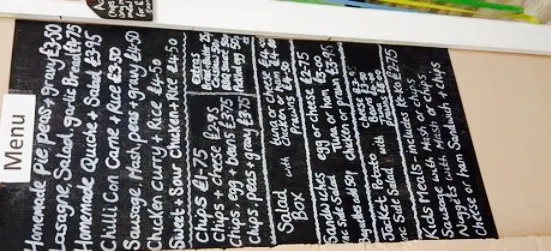 Menu
Homemade Pie, peas + gravy £3.50
Lasagne, Salad, garlic Bread £4.75
Homemade Quiche + Salad £3.95
Chilli Con Carne + Rice £3.50
Sausage, Mash, peas + gravy £4.50
Chicken Curry + Rice £4.50
Sweet + Sour Chicken + Rice £4.50
Chips £1.75
Chips + cheese £2.95
Chips, egg + beans £3.75
Chips, peas + gravy £3.75
Extras
Salad with tuna or cheese
Box chicken or ham £4.50
Prawns
Sandwiches egg or cheese
inc Side Salad Tuna or ham £3.95
chicken or prawn
Jacket Potato
inc Side Salad with
Cheese
Beans
Prawns
Kids Meals - includes £2.75
Sausage with Mash or chips
Nuggets with Mash or Chips
Cheese or ham Sandwich + chips